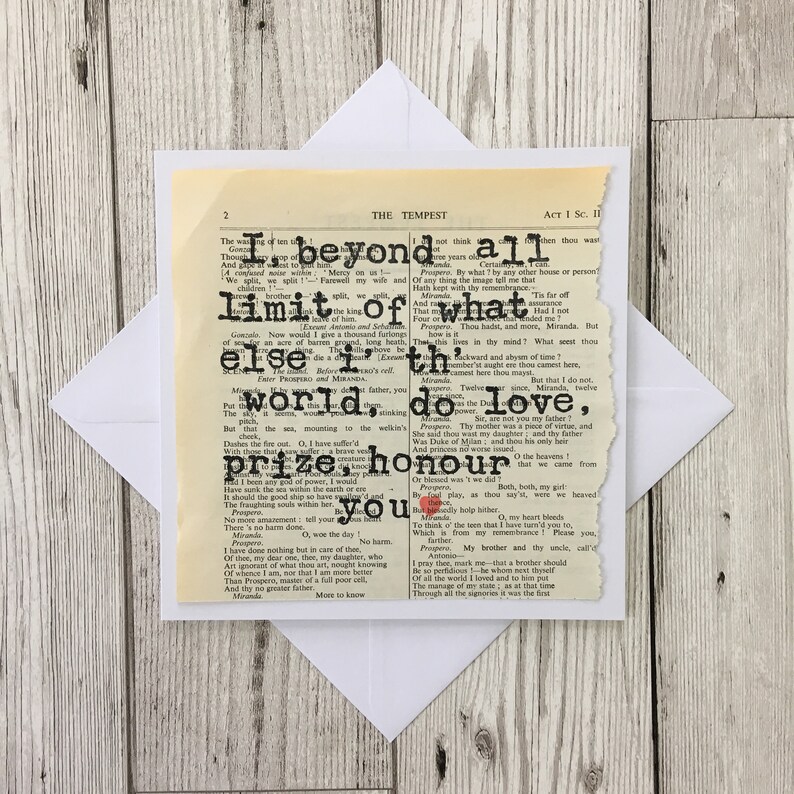 2 THE TEMPEST ACT I SC. II
I, beyond all
limit of what
else i' th'
world, do love,
prize, honour
you
The of ten
Gonzalo.
And gape at widest to glut him.
[A confused noise within: ' Mercy on us !—
' We split, we split ! '—' Farewell my wife and
children ! '—
brother split, we split,
the king.
leave of him.
[Exeunt Antonio and Sebastian.
Gonzalo. Now would I give a thousand furlongs
of sea for an acre of barren ground, long heath,
The wills above be
die a death. [Exeunt
The island. Before cell.
Enter PROSPERO and MIRANDA.
Miranda. If by your father, you
Put
The sky, it seems, would pour stinking
pitch,
But that the sea, mounting to the welkin's
cheek,
Dashes the fire out. O, I have suffer'd
With those that I saw suffer : a brave
Poor souls, they
Had I been any god of power, I would
Have sunk the sea within the earth or ere
It should the good ship so have swallow'd and
The fraughting souls within her.
Prospero. Be
No more amazement : tell your heart
There 's no harm done.
Miranda. O, woe the day !
Prospero. No harm.
I have done nothing but in care of thee,
Of thee, my dear one, thee, my daughter, who
Art ignorant of what thou art, nought knowing
Of whence I am, nor that I am more better
Than Prospero, master of a full poor cell,
And thy no greater father.
Miranda. More to know
I do not think thou for then thou wast
not
three years old.
Miranda. Certainly, sir, I can.
Prospero. By what ? by any other house or person?
Of any thing the image tell me that
Hath kept with thy remembrance.
Miranda. 'Tis far off
And
That my Had I not
Four or tended me ?
Prospero. Thou hadst, and more, Miranda. But
how is it
this lives in thy mind ? What seest thou
backward and abysm of time ?
aught ere thou camest here,
How thou camest here thou mayst.
Miranda. But that I do not.
Prospero. Twelve year since, Miranda, twelve
year since,
father was the Duke
Miranda. Sir, are not you my father ?
Prospero. Thy mother was a piece of virtue, and
She said thou wast my daughter ; and thy father
Was Duke of Milan ; and thou his only heir
And princess no worse issued.
O the heavens !
that we came from
Or blessed was 't we did ?
Prospero. Both, both, my girl:
By play, as thou say'st, were we heaved
But blessedly holp hither.
Miranda. O, my heart bleeds
To think o' the teen that I have turn'd you to,
Which is from my remembrance ! Please you,
farther.
Prospero. My brother and thy uncle, call'd
Antonio—
I pray thee, mark me—that a brother should
Be so perfidious !—he whom next thyself
Of all the world I loved and to him put
The manage of my state ; as at that time
Through all the signories it was the first